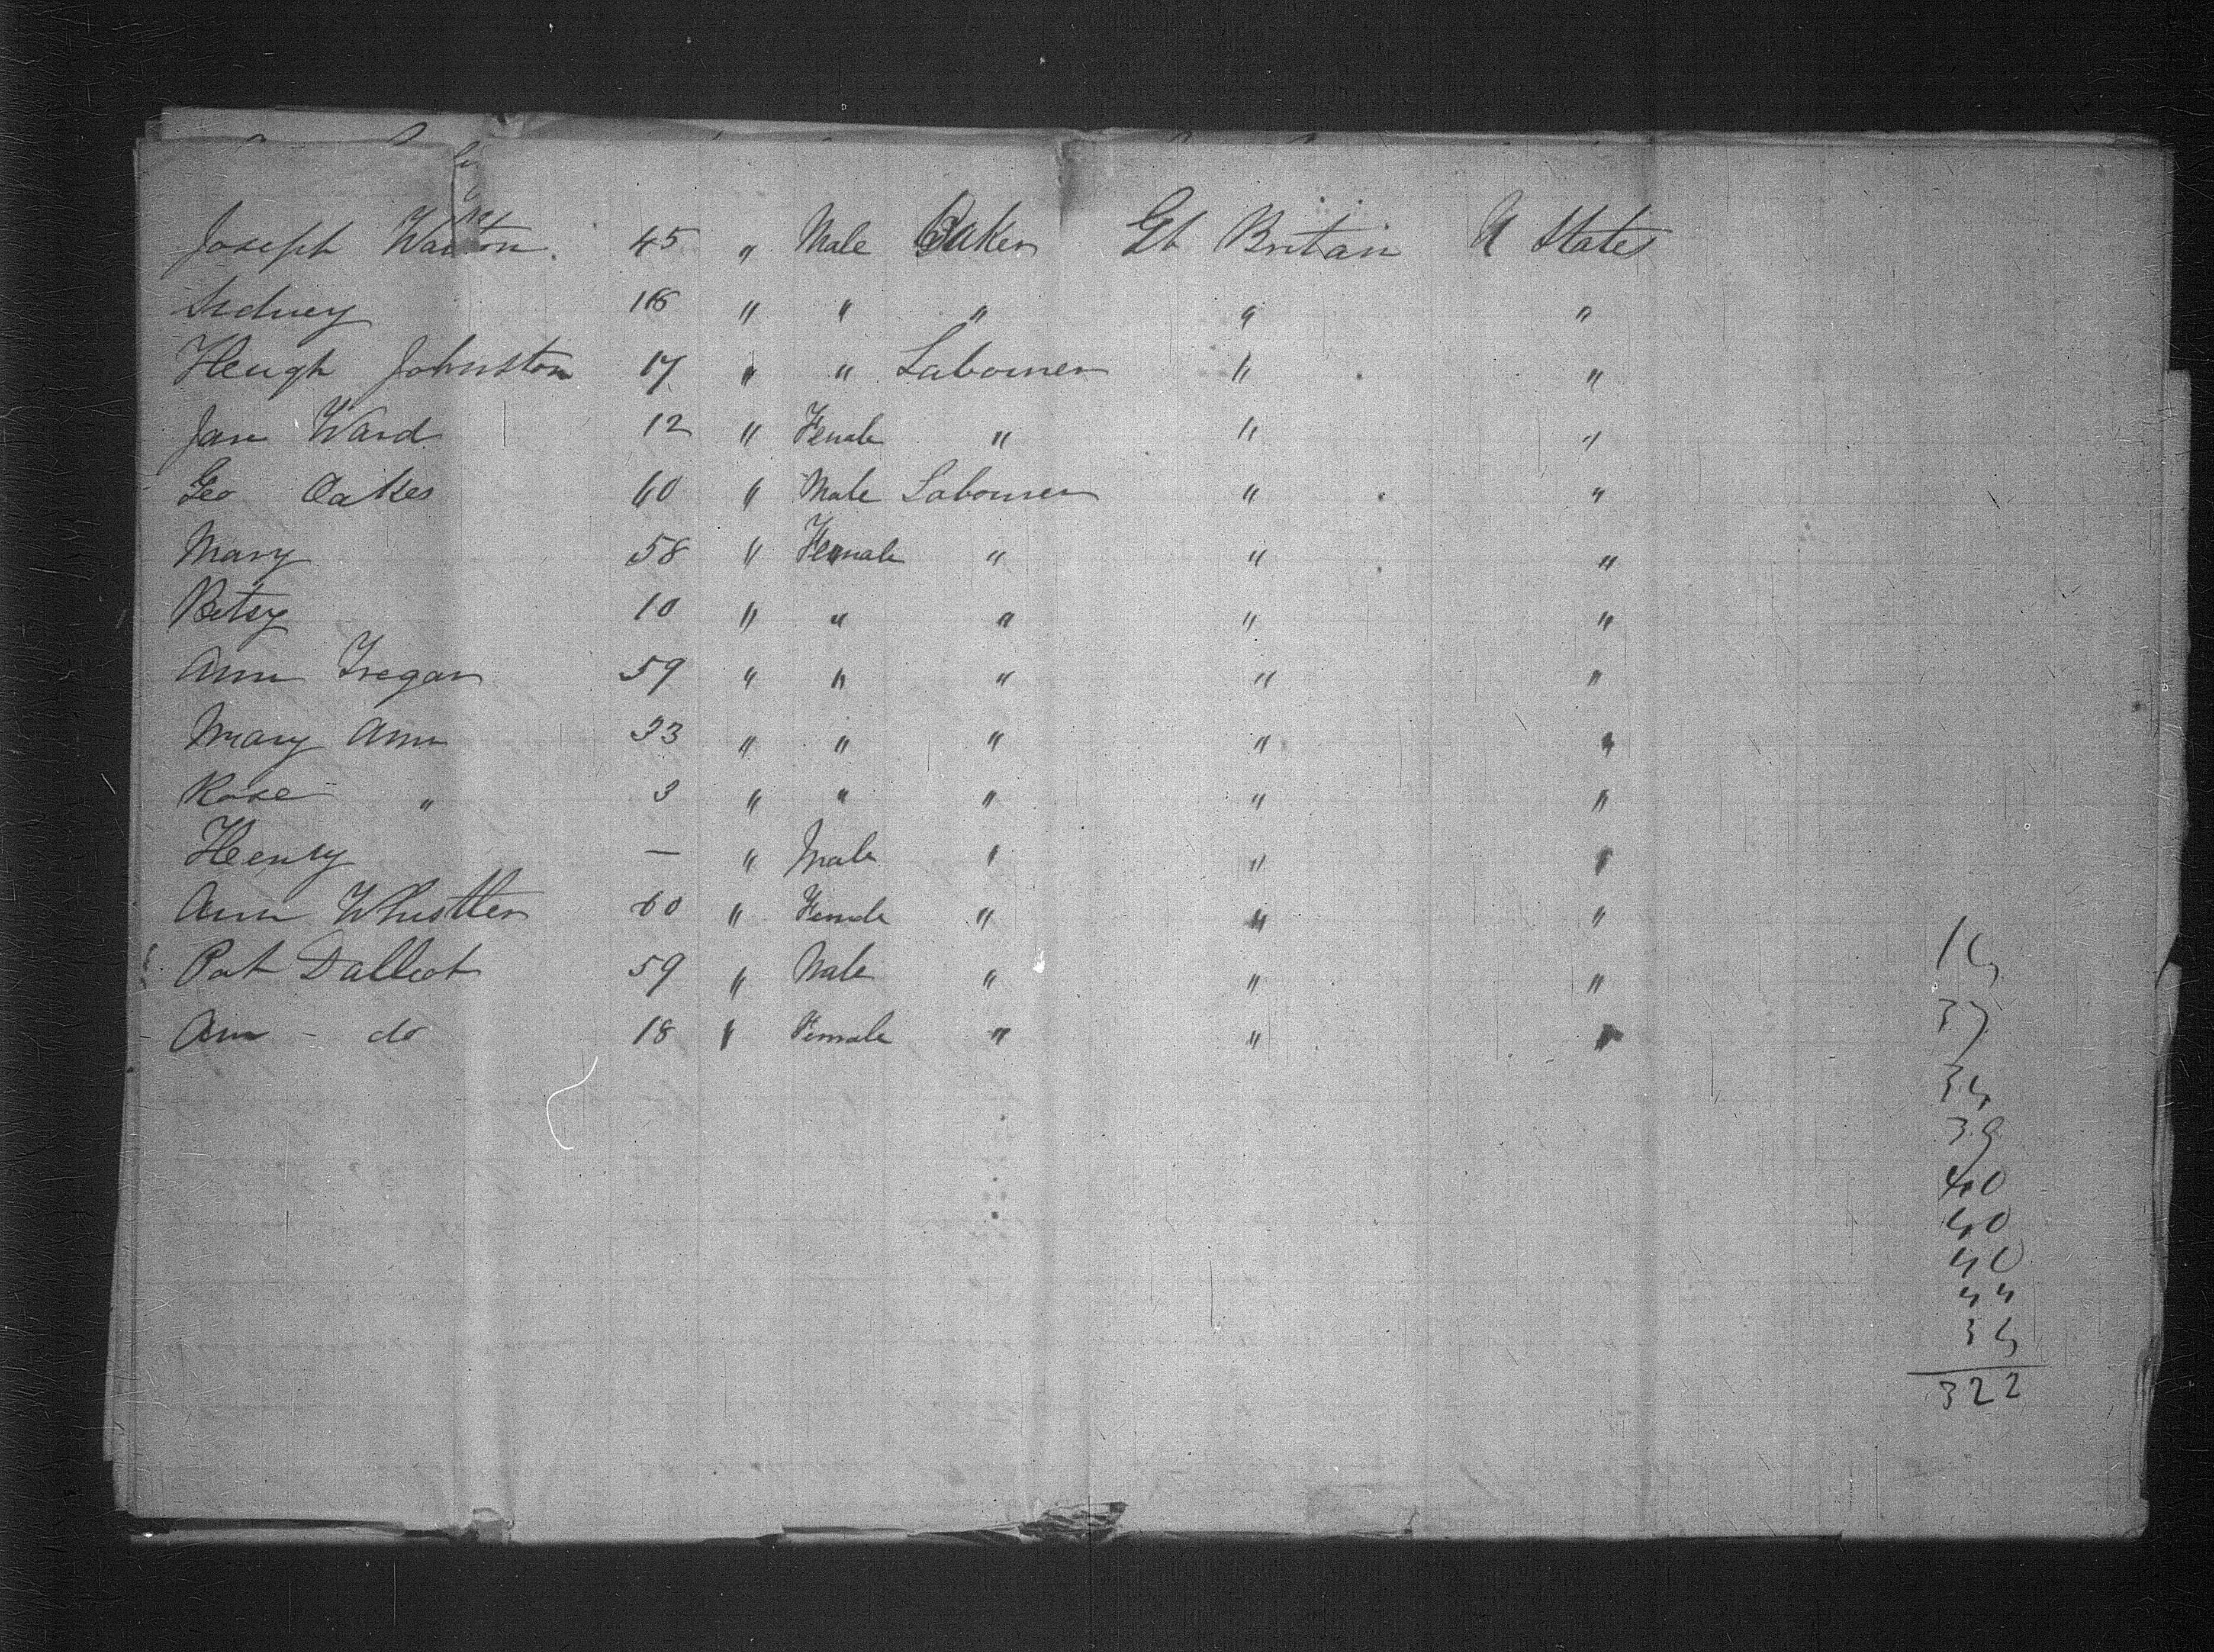 Joseph Walton 45 " Male Baker Gt Britain U States
Sidney 16 " " " " "
Heugh Johnston 17 " " Labourer " "
Jane Ward 12 " Female " " "
Geo Oakes 60 " Male Labourer " "
Mary 58 " Female " " "
Betsy 10 " " " " "
Ann Tregar 59 " " " " "
Mary Ann 33 " " " " "
Rose " 3 " " " " "
Henry — " Male " " "
Ann Whistler 60 " Female " " "
Pat Dalleot 59 " Male " " "
Ann - do 18 " Female " " "
14
37
34
39
40
40
40
44
34
322